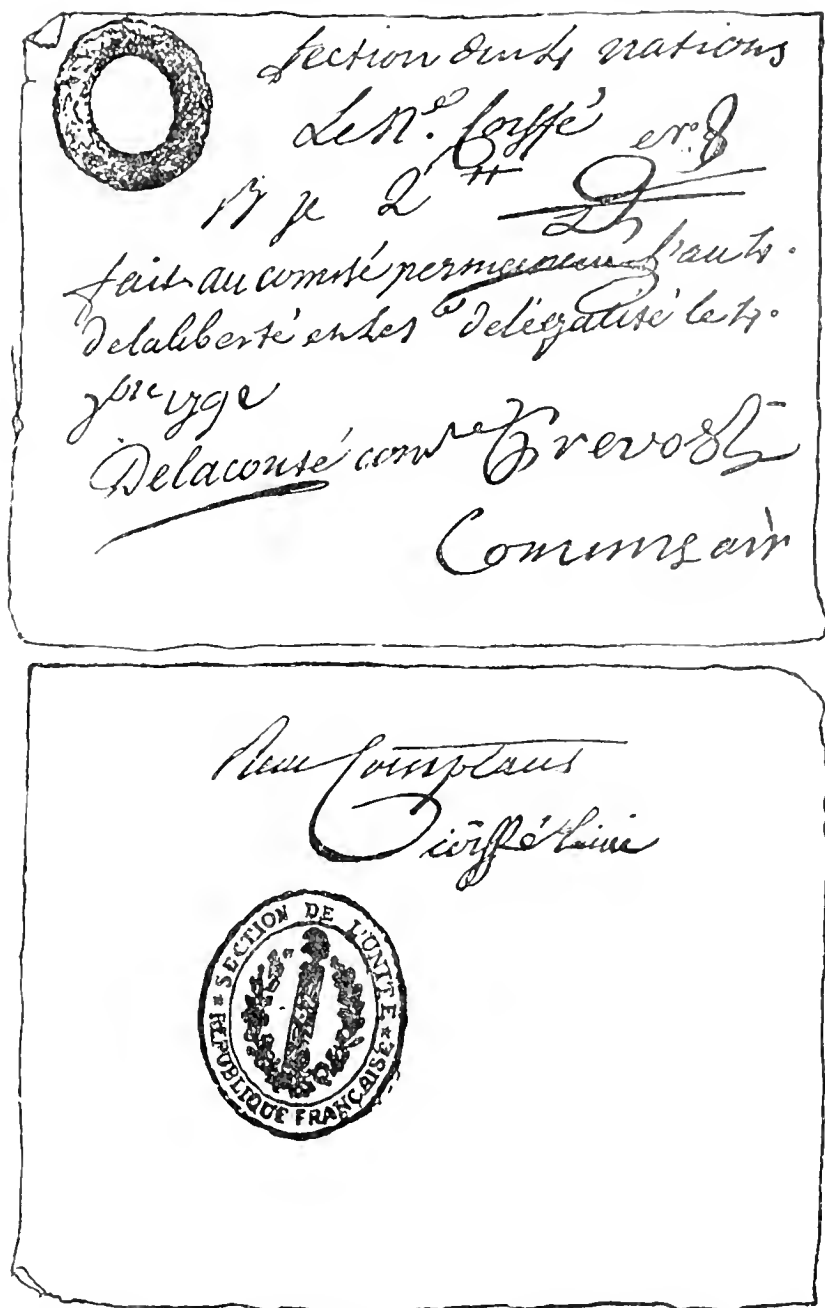 Section des 4 nations
Le Né. Coiffé
2 tt
fait au comité permanent l'an 4.
de la liberté et les de légalité le 4.
7bre 1792
Delaconté comre Prevost
Commisair
Reçu Comptant
coiffé
SECTION DE L'UNITE
REPUBLIQUE FRANÇAISE